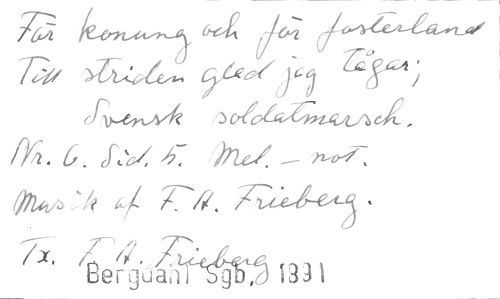 För konung och för fosterland
Till striden glad jag tågar;
Svensk soldatmarsch.
Nr. 6. Sid. 5. Mel. – not.
Musik af F. A. Frieberg.
Tx. F. A. Frieberg
Bergdahl Sgb, 1891